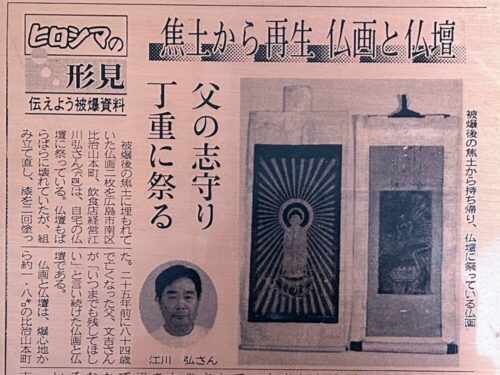 ヒロシマの
形見
伝えよう被爆資料
焦土から再生 仏画と仏壇
父の志守り
丁重に祭る
被爆後の焦土から持ち帰り、仏壇に祭っている仏画
被爆後の焦土に埋もれて
いた仏画二枚を広島市南区
比治山本町、飲食店経営江
川弘さんは、自宅の仏
壇に祭っている。仏壇もば
らばらに壊れていたが、組
み立て直し、漆を三回塗っ
た。二十五年前に八十四歳
で亡くなった父、文吉さん
が「いつまでも残してほし
い」と言い続けた仏画と仏
壇である。
仏画と仏壇は、爆心地か
ら約一・八㌔の比治山本町
江川 弘さん